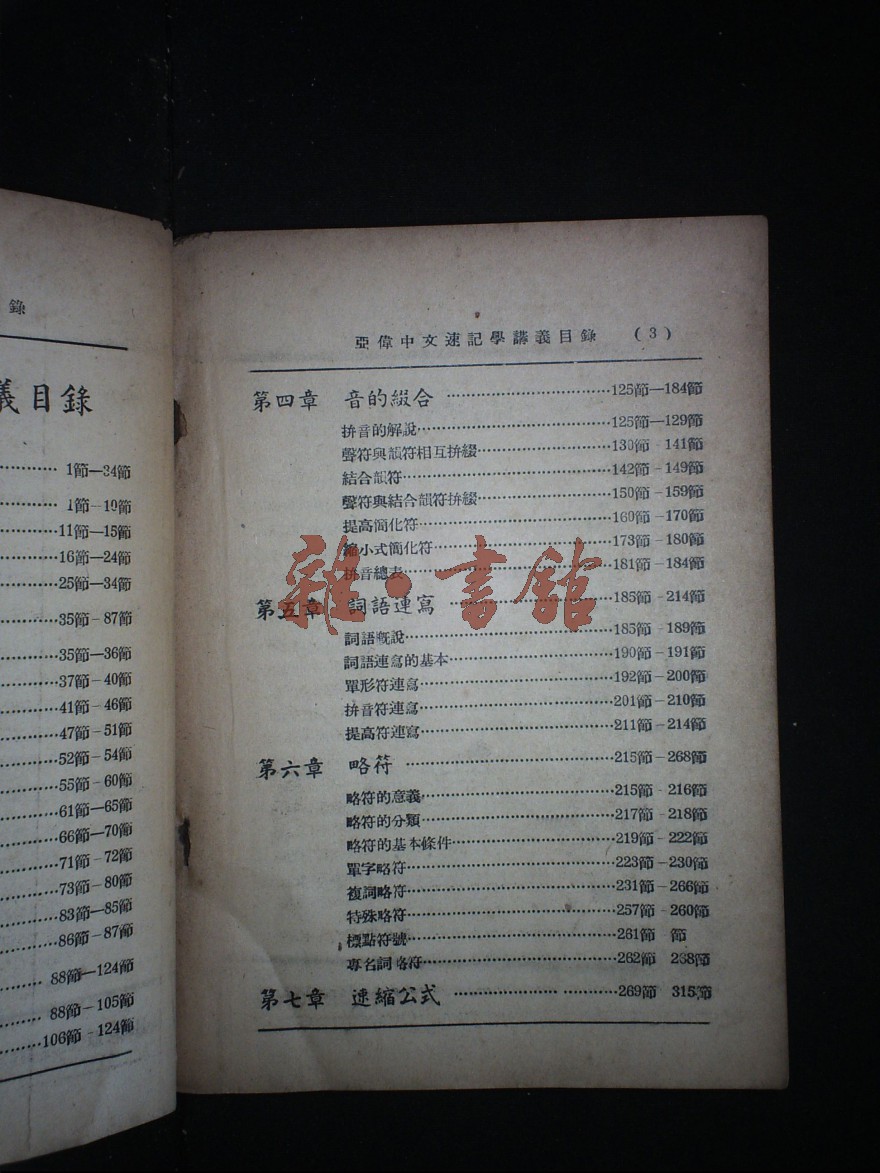 錄
義目錄
1節—34節
1節–10節
11節—15節
16節—24節
25節—34節
35節–87節
35節—36節
37節–40節
41節–46節
47節–51節
52節–54節
55節–60節
61節—65節
66節—70節
71節–72節
73節–80節
83節—85節
86節–87節
88節—124節
88節–105節
106節–124節
亞偉中文速記學講義目錄 (3)
第四章 音的綴合 ……………………………125節—184節
拼音的解說……………………………125節—129節
聲符與韻符相互拚綴……………………130節 141節
結合韻符……………………………142節–149節
聲符與結合韻符拚綴……………………150節–159節
提高簡化符……………………………160節–170節
縮小式簡化符……………………………173節–180節
拼音總表……………………………181節–184節
第五章 詞語連寫 ……………………………185節–214節
詞語概說……………………………185節–189節
詞語連寫的基本……………………………190節–191節
單形符連寫……………………………192節–200節
拚音符連寫……………………………201節–210節
提高符連寫……………………………211節–214節
第六章 略符 ……………………………215節–268節
略符的意義……………………………215節 216節
略符的分類……………………………217節–218節
略符的基本條件……………………………219節–222節
單字略符……………………………223節–230節
複詞略符……………………………231節–266節
特殊略符……………………………257節–260節
標點符號……………………………261節 節
專名詞略符……………………………262節 238節
第七章 速縮公式 ……………………………269節 315節
雜·書館